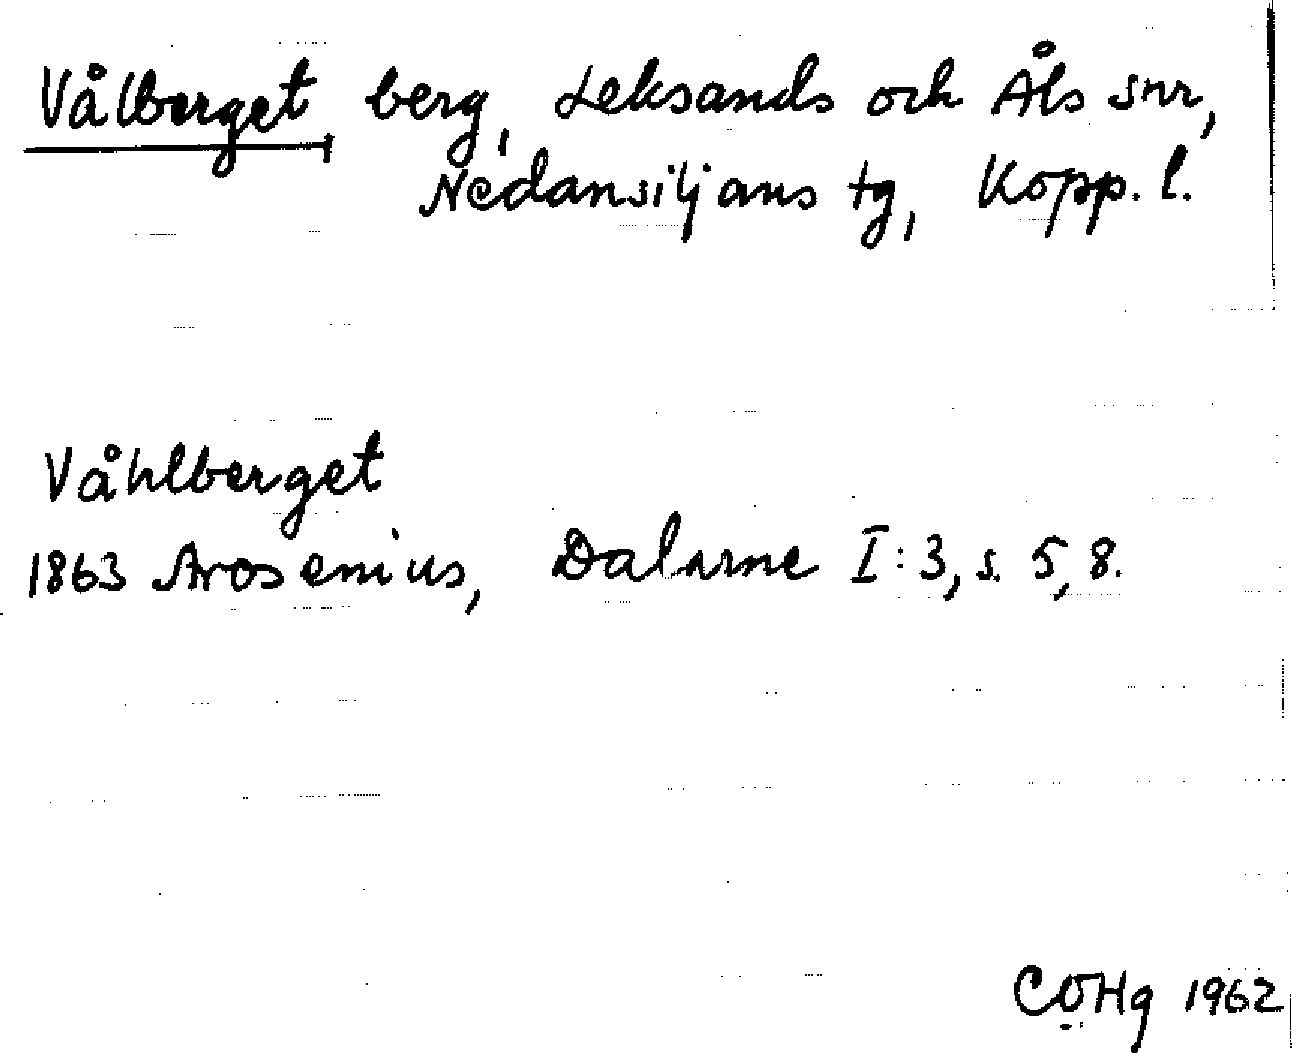 Vålberget, berg, Leksands och Åls snr,
Nedansiljans tg, Kopp. l.
Våhlberget
1863 Arosenius, Dalarne I:3, s. 5, 8.
COHg 1962